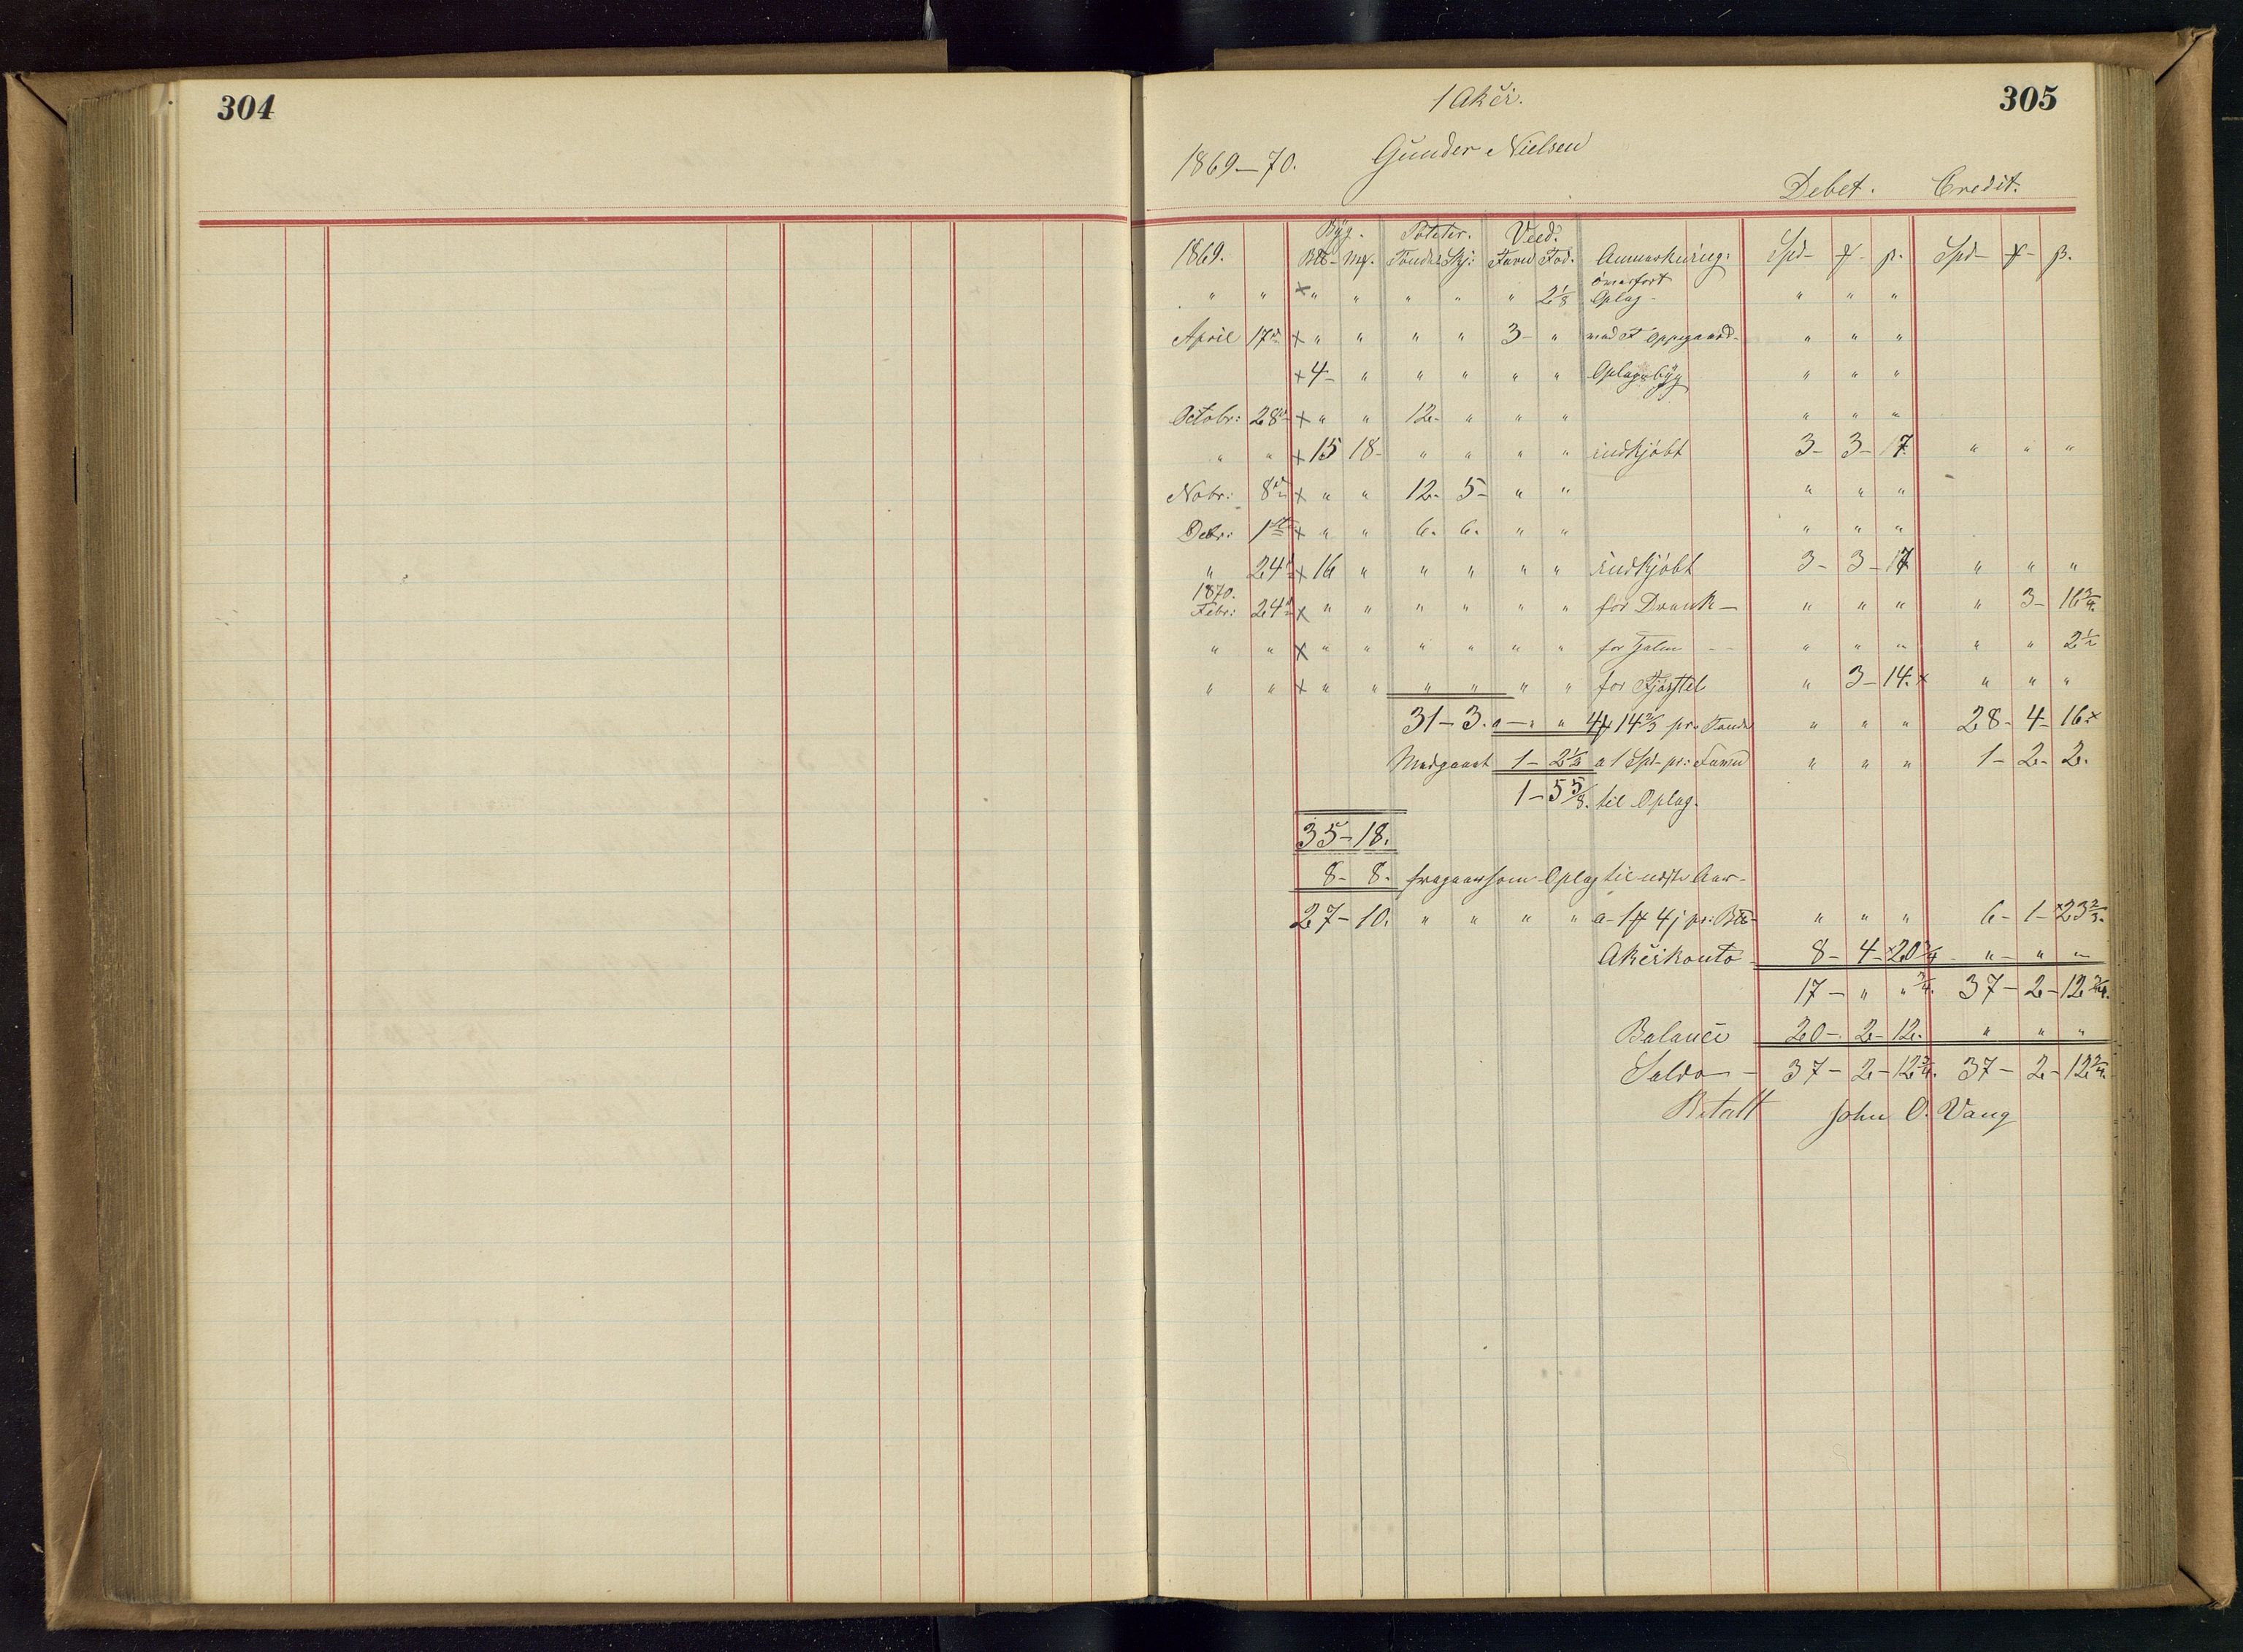 304
305
1 Akčr.
1869–70. Gunder Nielsen
Debet. Credit.
Byg. Poteter. Veed.
1869. Tønder Skj: Favn Fod. Anmærkning: Spd–
overført
" " × " " " " " 2 1/8 Oplag – " " "
April 17de × " " " " 3– " med Oppegaard– " " "
× 4– " " " " " Oplag byg " " "
Octobr: 28de × " " 12– " " " " " "
" " × 15 18– " " " " indkjøbt 3– 3– 17 " " "
Nobr: 8de × " " 12– 5– " " " " "
Debr: 1ste × " " 6– 6– " " " " "
" 24d × 16 " " " " " indkjøbt 3– 3– 17 " " "
1870.
Febr: 24d × " " " " " " for Drank – " " " " 3– 16 3/4
" " × " " " " " " for " " " " " 2 1/2
" " × " " " " " " for " 3– 14. × " " "
31– 3. " – " " 14 2/3 pr. Tønde " " " 28– 4– 16 ×
Medgaaet 1– 2 1/2 a 1 Spd– pr: Favn " " " 1– 2– 2.
1– 5 5/8. til Oplag.
35– 18.
8– 8. fragaar som Oplag til næste Aar–
27– 10. " " " " a– 4 pr: " " " 6– 1– × 23 2/3.
Akčrkonto – 8– 4– × 20 3/4 – " – " –
17– " " 3/4. 37– 2– 12 3/4.
Balance 20– 2– 12. " " "
Saldo – 37– 2– 12 3/4. 37– 2– 12 3/4.
Betalt John O. Vang